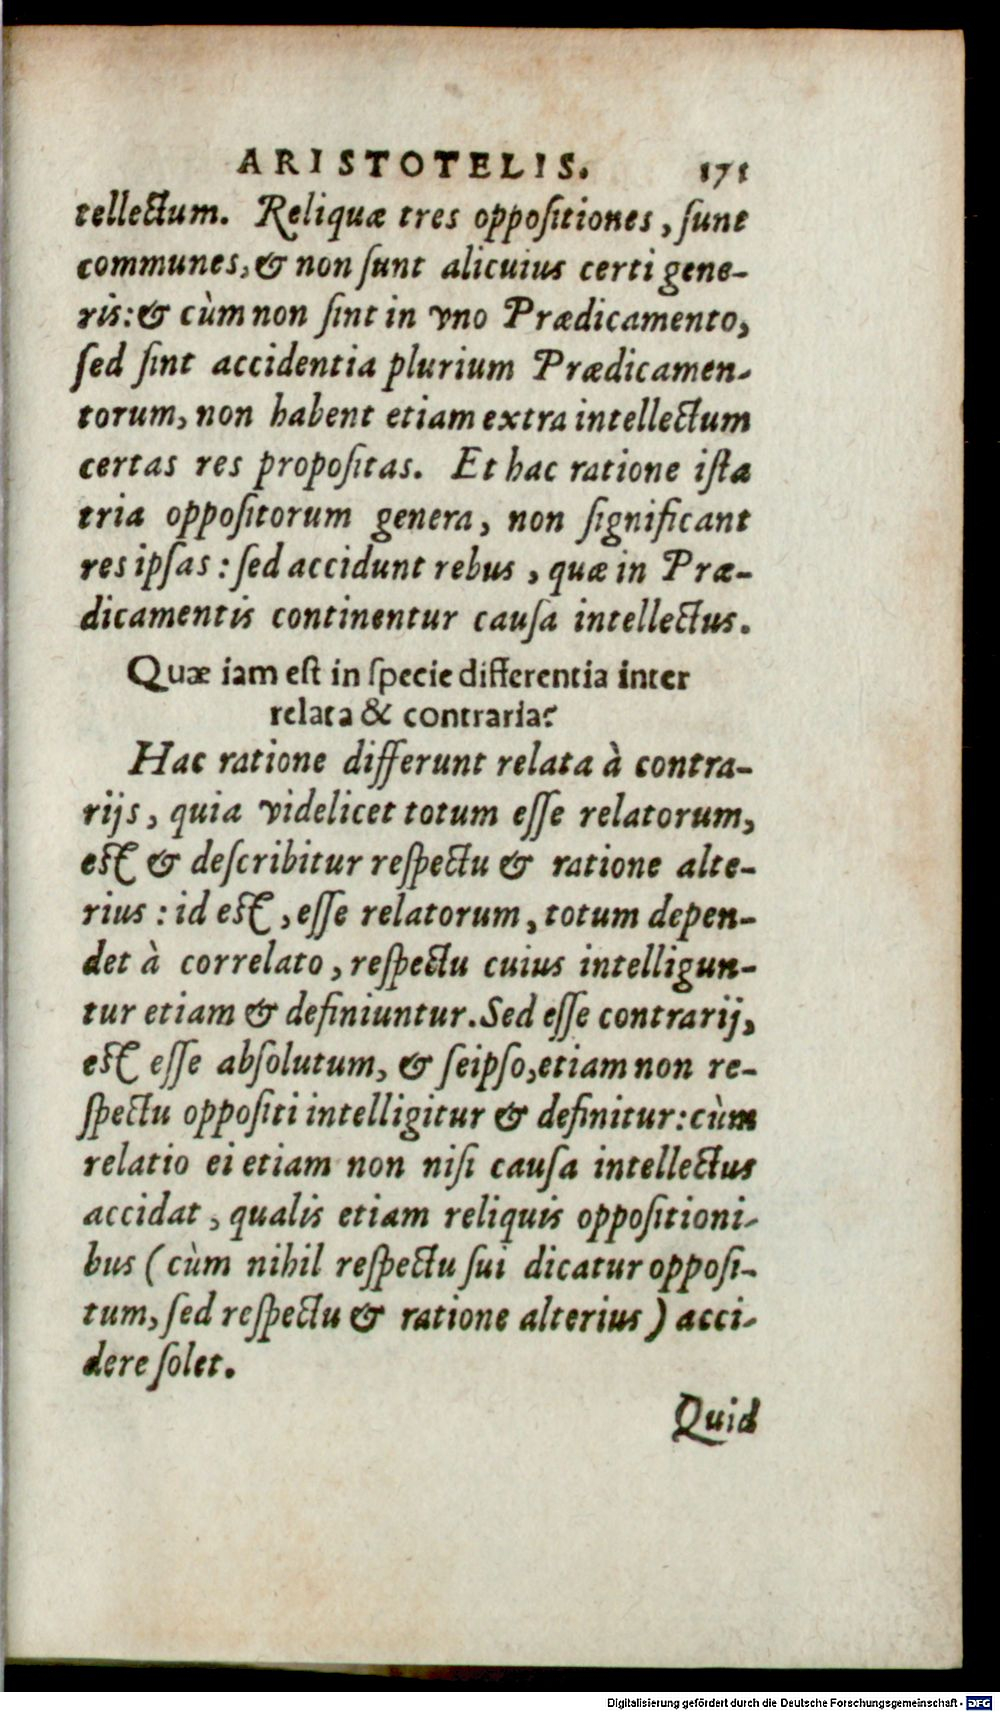 ARISTOTELIS. 171
tellectum. Reliquæ tres oppoſitiones, ſunt
communes, & non ſunt alicuius certi gene-
ris: & cùm non ſint in vno Prædicamento,
ſed ſint accidentia plurium Prædicamen-
torum, non habent etiam extra intellectum
certas res propoſitas. Et hac ratione iſta
tria oppoſitorum genera, non ſignificant
res ipſas: ſed accidunt rebus, quæ in Præ-
dicamentis continentur cauſa intellectus.
Quæ iam eſt in ſpecie differentia inter
relata & contraria?
Hac ratione differunt relata à contra-
rijs, quia videlicet totum eſſe relatorum,
eſt & deſcribitur reſpectu & ratione alte-
rius: id eſt, eſſe relatorum, totum depen-
det à correlato, reſpectu cuius intelligun-
tur etiam & definiuntur. Sed eſſe contrarij,
eſt eſſe abſolutum, & ſeipſo, etiam non re-
ſpectu oppoſiti intelligitur & definitur: cùm
relatio ei etiam non niſi cauſa intellectus
accidat, qualis etiam reliquis oppoſitioni-
bus (cùm nihil reſpectu ſui dicatur oppoſi-
tum, ſed reſpectu & ratione alterius) acci-
dere ſolet.
Quid
Digitalisierung gefördert durch die Deutsche Forschungsgemeinschaft - DFG